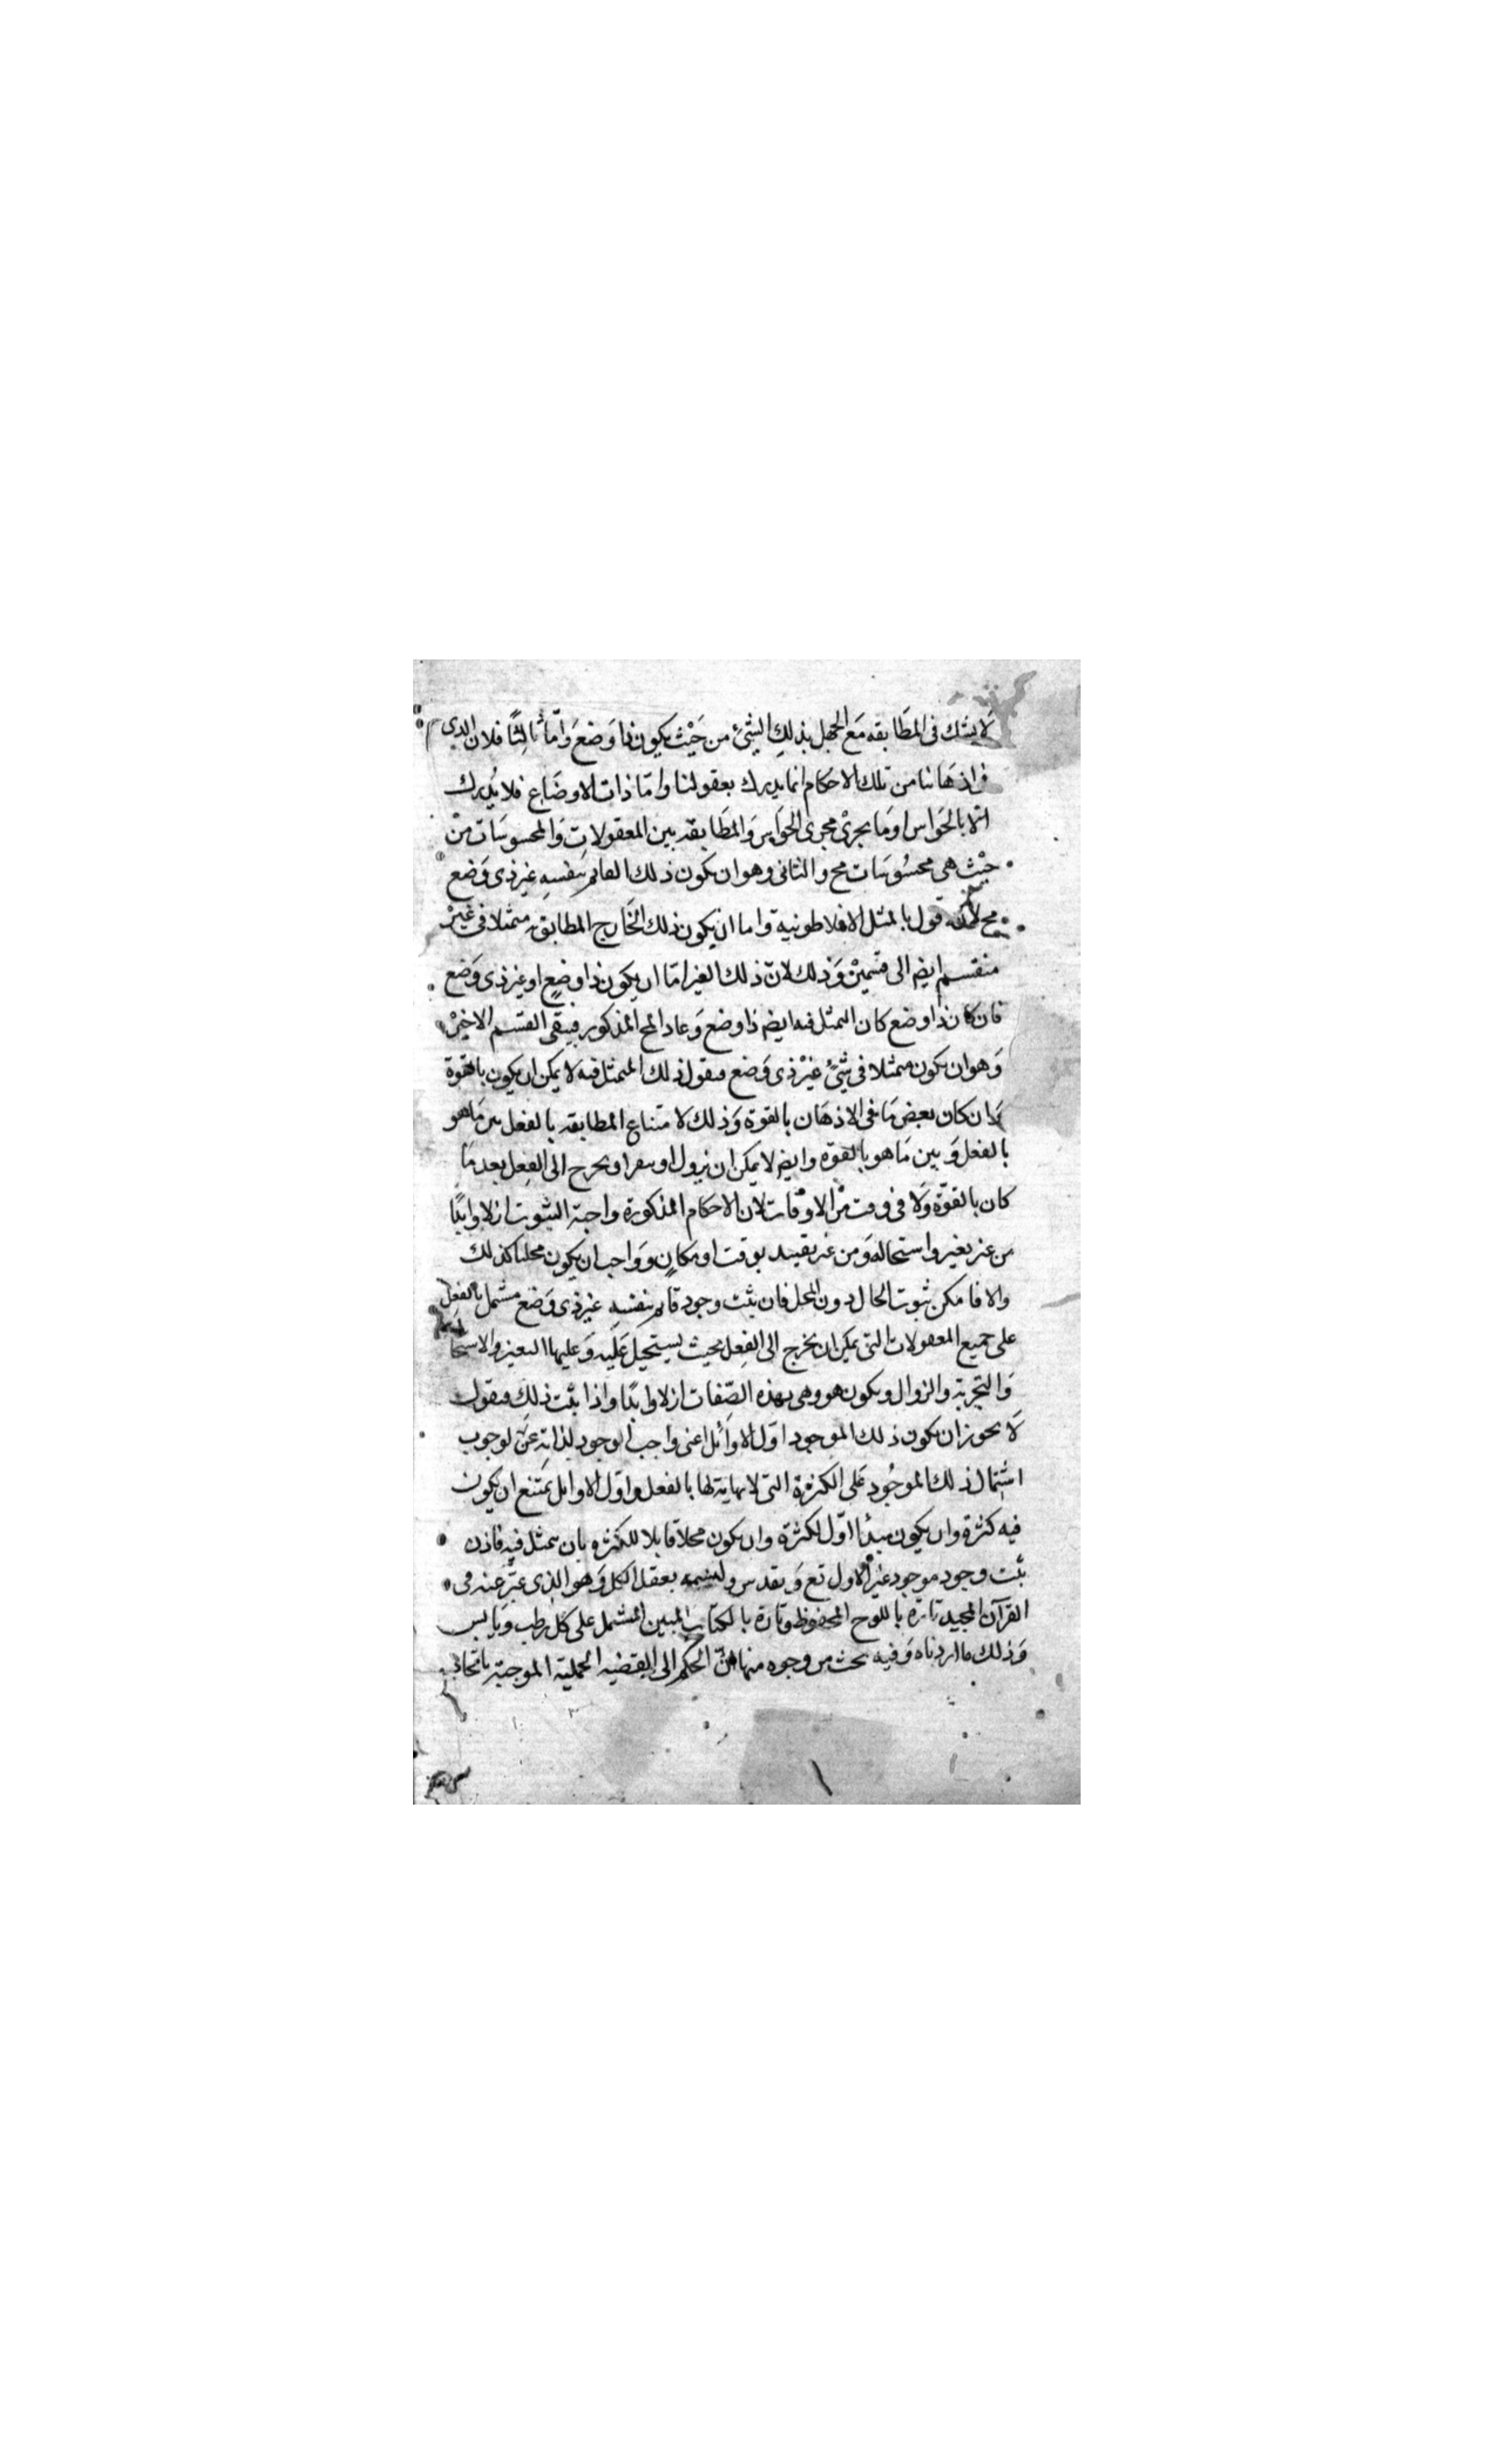 لا يشك فى المطابقه مَع الجهل بذلك الشئ من حَيْث يكون ذا وَضع وَامّا ثالثًا فلان الذى
فى اذهَاننا من تلك الاحكام انما يدرك بعقولنا وامّا ذات الاوضَاع فلا يُدرك
الا بالحَواس او مَا يجرىْ مجرى الحَواس وَالمطَابقه بين المعقولات وَالمحسوسَات منْ
حيْث هى محسُوسَات مح والثانى وهو ان يكون ذلك القايم بنفسِهِ غير ذى وَضع
مح لانه قول بالمثل الافلاطونية واما ان يكون ذلك الخَارج المطابق متمثلا فى غيْر
منقسم ايض الى قسميْن وَذلك لانّ ذلك الغير امّا ان يكون ذا وضعٍ او غير ذى وَضع
فان كان ذا وضع كان المتمثل فيه ايض ذا وضع وَعاد المح المذكور فيبقى القسم الاخيْر
وَهو ان يكون متمثلا فى شئ غيْر ذى وَضع فنقول ذلك المتمثل فيه لا يمكن ان يكون بالقوة
وَان كان بعض مَا فى الاذهَان بالقوة وَذلك لامتناع المطابقه بالفعل بين مَا هو
بالفعل وَبين مَا هو بالقوّه وايض لا يمكن ان يزول او يتغير او يخرج الى الفِعل بعد مَا
كان بالقوّة وَلا فى وقت منْ الاوْقات لان الاحكام المذكورة واجبة الثبوت ازلا وابدًا
من غير تغير واستحاله وَمن غير تقييد بوقت او مكانٍ وَواجب ان يكون محلها كذلك
والا فامكن ثبوت الحال دون المحل فان ثبت وجود قايم بنفسِهِ غير ذى وَضع مشتمل بالفعل
على جميع المعقولات التى يمكن ان يخرج الى الفِعل بحيث يستحيل عَليْه وَعليها التغير والاستحا
وَالتجربة والزوال ويكون هو وهى بهذه الصِّفات ازلا وابدًا واذا ثبت ذلك فنقول
لَا يجوز ان يكون ذلك الموجود اوّل الاوَائل اعنى واجب الوجود لذاته عزّ لوجوب
اشتمال ذلك الموجُود عَلى الكثرة التى لا نهاية لها بالفعل واوّل الاوايل يمتنع ان يكون
فيه كثرة وان يكون مبدأ اوّل لكثرة وان يكون محلا قابلا للكثره بان يتمثل فيه فاذن
ثبت وجود موجود غير الاول تع وَتقدس ولنسمه بعقل الكل وَهو الذى عبّر عنه فى
القرآن المجيد تارة باللوح المحفوظ وتارة بالكتاب المبين المشتمل على كل رطب ويابس
وَذلك ما اردناه وَفيه بحث من وجوه منها انّ الحكم الى القضيه الحمليّة الموجبة باتحاد